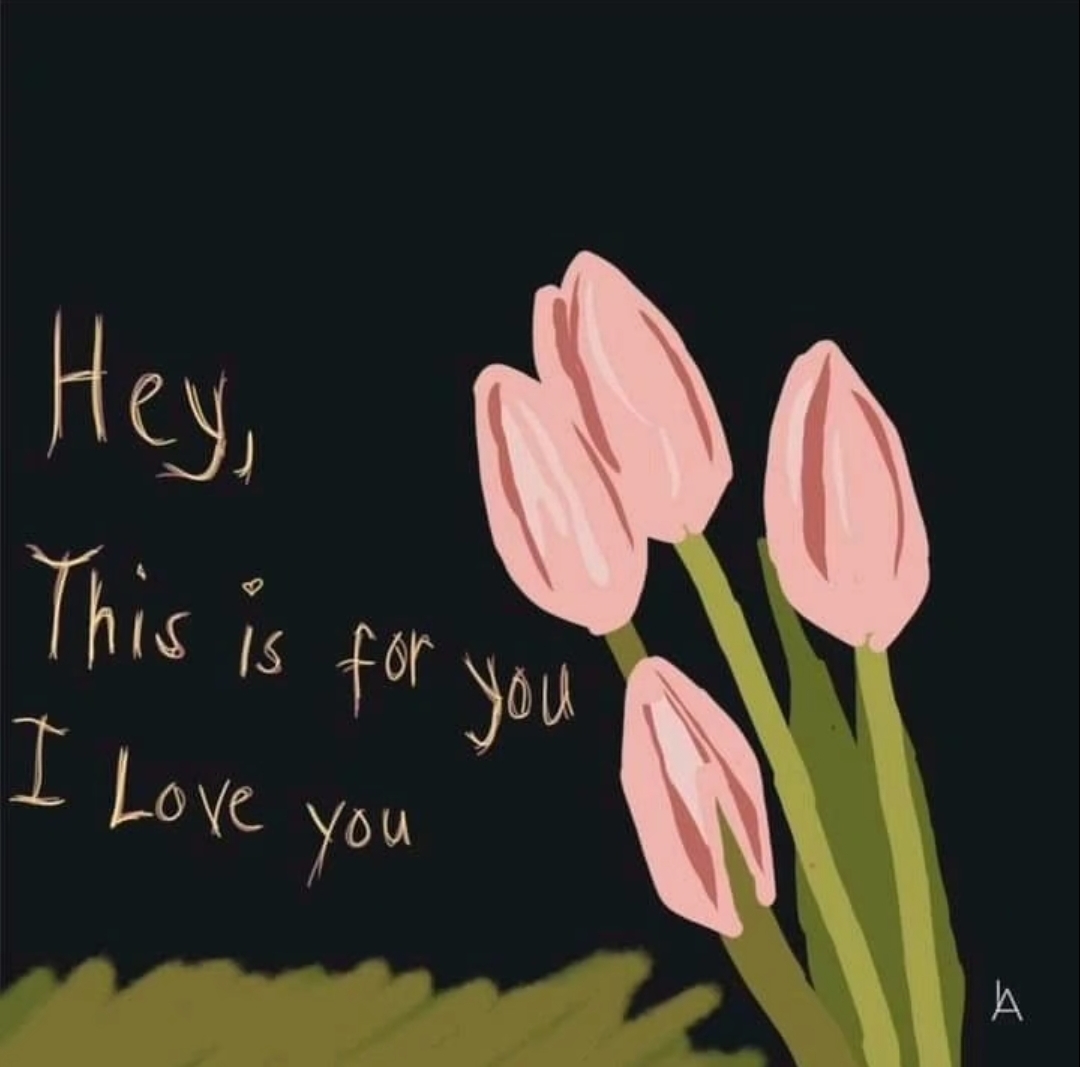 Hey,
This is for you
I Love you